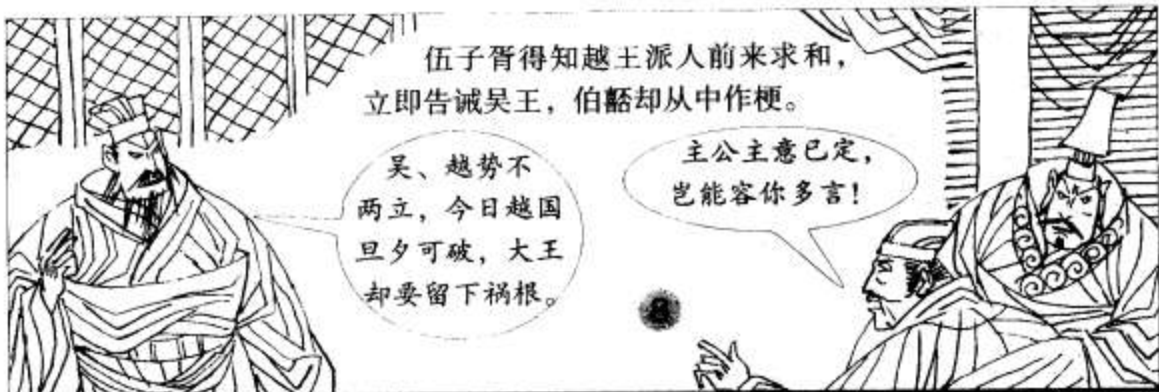 伍子胥得知越王派人前来求和，
立即告诫吴王，伯嚭却从中作梗。
吴、越势不
两立，今日越国
旦夕可破，大王
却要留下祸根。
主公主意已定，
岂能容你多言！